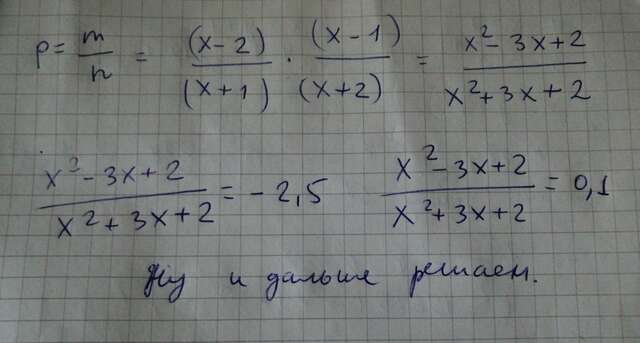 p = m/n = (x-2)/(x+1) · (x-1)/(x+2) = x²-3x+2/x²+3x+2
x²-3x+2/x²+3x+2 = -2,5 x²-3x+2/x²+3x+2 = 0,1
Ну и дальше решаем.